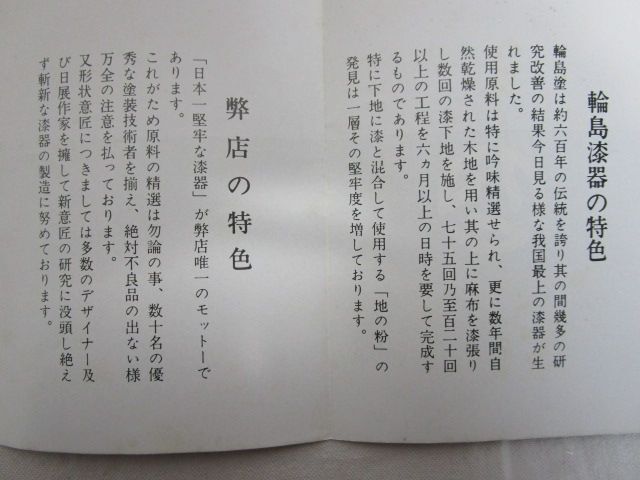 輪島漆器の特色
輪島塗は約六百年の伝統を誇り其の間幾多の研
究改善の結果今日見る様な我国最上の漆器が生
れました。
使用原料は特に吟味精選せられ、更に数年間自
然乾燥された木地を用い其の上に麻布を漆張り
し数回の漆下地を施し、七十五回乃至百二十回
以上の工程を六ヵ月以上の日時を要して完成す
るものであります。
特に下地に漆と混合して使用する「地の粉」の
発見は一層その堅牢度を増しております。
弊店の特色
「日本一堅牢な漆器」が弊店唯一のモットーで
あります。
これがため原料の精選は勿論の事、数十名の優
秀な塗装技術者を揃え、絶対不良品の出ない様
万全の注意を払っております。
又形状意匠につきましては多数のデザイナー及
び日展作家を擁して新意匠の研究に没頭し絶え
ず斬新な漆器の製造に努めております。